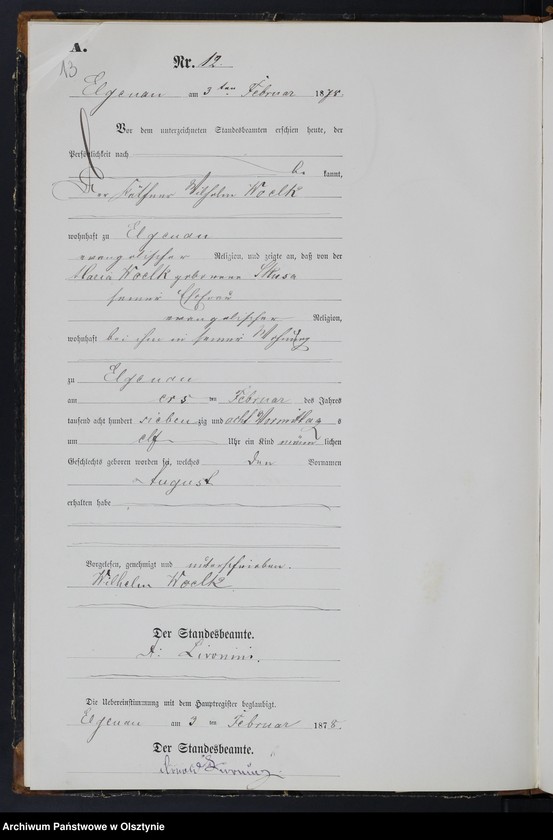 A.
13
Nr. 12.
Elgenau am 3ten Februar 1878.
Vor dem unterzeichneten Standesbeamten erschien heute, der
Persönlichkeit nach
be kannt,
Der Käthner Wilhelm Woelk
wohnhaft zu Elgenau
evangelischer Religion, und zeigte an, daß von der
Maria Woelk geborene Skusa
seiner Ehefrau
evangelischer Religion,
wohnhaft bei ihm in seiner Wohnung
zu Elgenau
am ersten Februar des Jahres
tausend acht hundert sieben zig und acht Vormittag s
um elf Uhr ein Kind männ lichen
Geschlechts geboren worden sei, welches den Vornamen
August
erhalten habe
Vorgelesen, genehmigt und unterschrieben.
Wilhelm Woelk
Der Standesbeamte.
Die Uebereinstimmung mit dem Hauptregister beglaubigt.
Elgenau am 3 ten Februar 1878.
Der Standesbeamte.
Archiwum Państwowe w Olsztynie